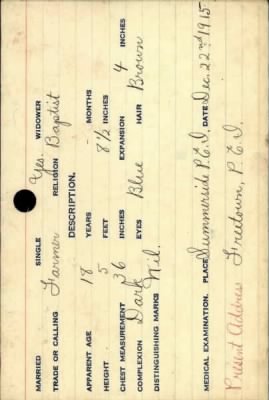 MARRIED SINGLE Yes. WIDOWER
TRADE OR CALLING Farmer RELIGION Baptist
DESCRIPTION.
APPARENT AGE 18 YEARS MONTHS
HEIGHT 5 FEET 8½ INCHES
CHEST MEASUREMENT 36 INCHES EXPANSION 4 INCHES
COMPLEXION Dark EYES Blue HAIR Brown
DISTINGUISHING MARKS Nil.
MEDICAL EXAMINATION. PLACE Summerside P.E.I. DATE Dec. 22nd 1915
Present Address Freetown, P.E.I.